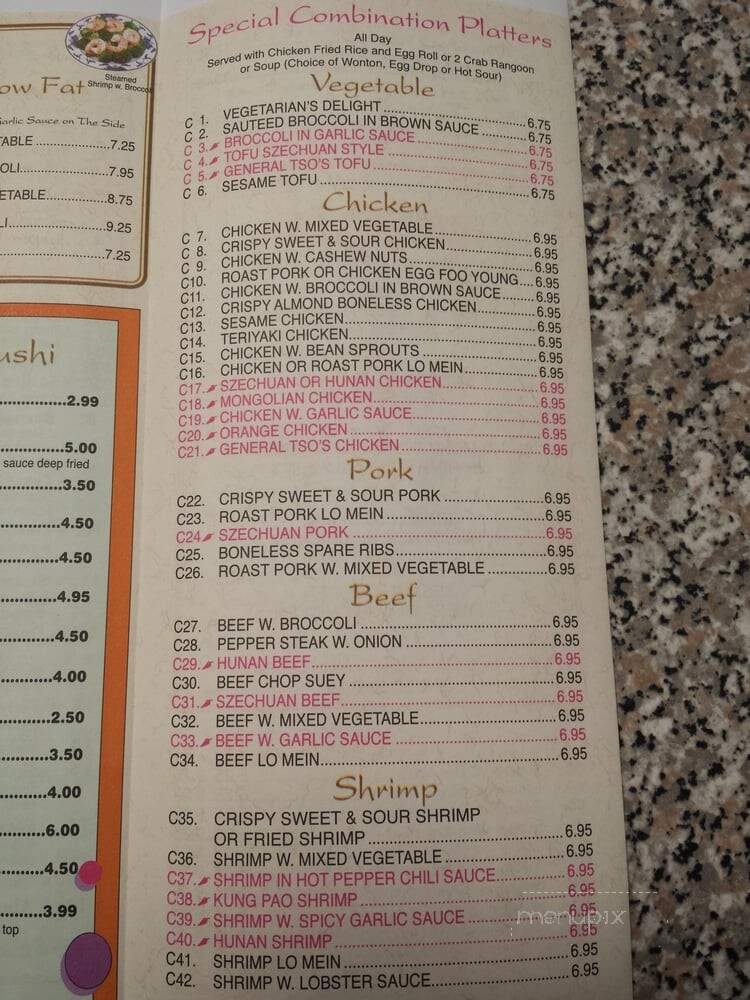 Steamed
Shrimp w. Broccoli
ow Fat
Garlic Sauce on The Side
TABLE 7.25
OLI 7.95
ETABLE 8.75
LI 9.25
7.25
ushi
2.99
5.00
sauce deep fried
3.50
4.50
4.50
4.95
4.50
4.00
2.50
3.50
4.00
6.00
4.50
3.99
top
Special Combination Platters
All Day
Served with Chicken Fried Rice and Egg Roll or 2 Crab Rangoon
or Soup (Choice of Wonton, Egg Drop or Hot Sour)
Vegetable
C 1. VEGETARIAN'S DELIGHT 6.75
C 2. SAUTEED BROCCOLI IN BROWN SAUCE 6.75
C 3. BROCCOLI IN GARLIC SAUCE 6.75
C 4. TOFU SZECHUAN STYLE 6.75
C 5. GENERAL TSO'S TOFU 6.75
C 6. SESAME TOFU 6.75
Chicken
C 7. CHICKEN W. MIXED VEGETABLE 6.95
C 8. CRISPY SWEET & SOUR CHICKEN 6.95
C 9. CHICKEN W. CASHEW NUTS 6.95
C10. ROAST PORK OR CHICKEN EGG FOO YOUNG 6.95
C11. CHICKEN W. BROCCOLI IN BROWN SAUCE 6.95
C12. CRISPY ALMOND BONELESS CHICKEN 6.95
C13. SESAME CHICKEN 6.95
C14. TERIYAKI CHICKEN 6.95
C15. CHICKEN W. BEAN SPROUTS 6.95
C16. CHICKEN OR ROAST PORK LO MEIN 6.95
C17. SZECHUAN OR HUNAN CHICKEN 6.95
C18. MONGOLIAN CHICKEN 6.95
C19. CHICKEN W. GARLIC SAUCE 6.95
C20. ORANGE CHICKEN 6.95
C21. GENERAL TSO'S CHICKEN 6.95
Pork
C22. CRISPY SWEET & SOUR PORK 6.95
C23. ROAST PORK LO MEIN 6.95
C24. SZECHUAN PORK 6.95
C25. BONELESS SPARE RIBS 6.95
C26. ROAST PORK W. MIXED VEGETABLE 6.95
Beef
C27. BEEF W. BROCCOLI 6.95
C28. PEPPER STEAK W. ONION 6.95
C29. HUNAN BEEF 6.95
C30. BEEF CHOP SUEY 6.95
C31. SZECHUAN BEEF 6.95
C32. BEEF W. MIXED VEGETABLE 6.95
C33. BEEF W. GARLIC SAUCE 6.95
C34. BEEF LO MEIN 6.95
Shrimp
C35. CRISPY SWEET & SOUR SHRIMP
OR FRIED SHRIMP 6.95
C36. SHRIMP W. MIXED VEGETABLE 6.95
C37. SHRIMP IN HOT PEPPER CHILI SAUCE 6.95
C38. KUNG PAO SHRIMP 6.95
C39. SHRIMP W. SPICY GARLIC SAUCE 6.95
C40. HUNAN SHRIMP 6.95
C41. SHRIMP LO MEIN 6.95
C42. SHRIMP W. LOBSTER SAUCE 6.95
menupix